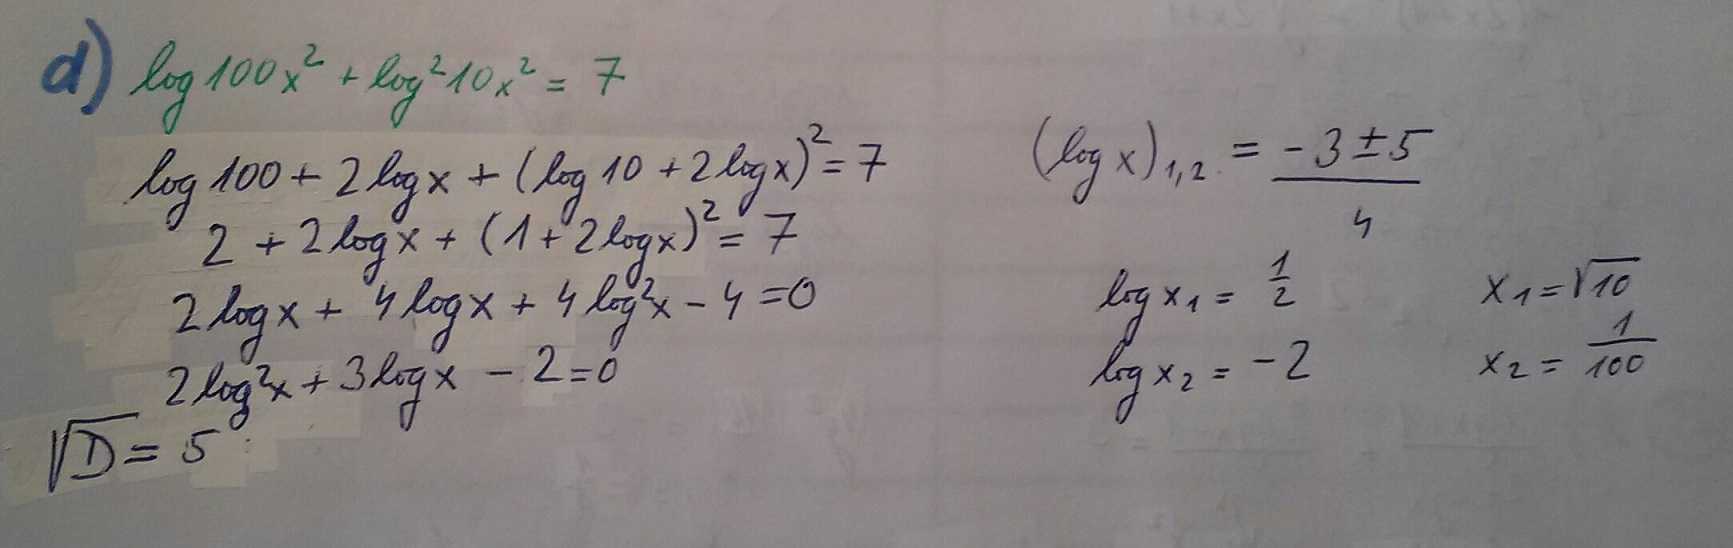 d) log 100x² + log² 10x² = 7
log 100 + 2 log x + (log 10 + 2 log x)² = 7
2 + 2 log x + (1 + 2 log x)² = 7
2 log x + 4 log x + 4 log² x - 4 = 0
2 log² x + 3 log x - 2 = 0
√D = 5
(log x)₁,₂ = (-3 ± 5)/4
log x₁ = 1/2 x₁ = √10
log x₂ = -2 x₂ = 1/100